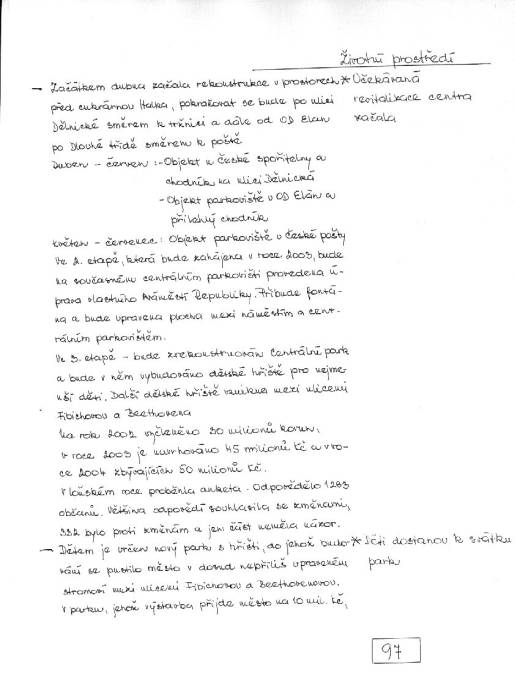 Životní prostředí
— Začátkem dubna začala rekonstrukce v prostorech * Očekávaná
před cukrárnou Halka, pokračovat se bude po ulici revitalizace centra
Dělnické směrem k tržnici a dále od OD Elán začala
po Dlouhé třídě směrem k poště
Duben – červen: - Objekt u České spořitelny a
chodník na ulici Dělnická
- Objekt parkoviště u OD Elán a
přilehlý chodník
Květen – červenec: Objekt parkoviště u České pošty
Ve 2. etapě, která bude zahájena v roce 2003, bude
na současném centrálním parkovišti provedena ú-
prava vlastního náměstí Republiky. Přibude fontá-
na a bude upravena plocha mezi náměstím a cent-
rálním parkovištěm.
Ve 3. etapě – bude zrekonstruován Centrální park
a bude v něm vybudováno dětské hřiště pro nejme-
nší děti. Další dětské hřiště vznikne mezi ulicemi
Fibichovou a Beethovena
Na rok 2002 vyčleněno 30 milionů korun,
v roce 2003 je navrhováno 45 milionů Kč a v ro-
ce 2004 zbývajících 50 milionů Kč.
V loňském roce proběhla anketa. Odpovědělo 1283
občanů. Většina odpovědí souhlasila se změnami,
332 bylo proti změnám a jen část neměla názor.
— Dětem je určen nový park s hřišti, do jehož budo- * Děti dostanou k svátku
vání se pustilo město v dosud nepříliš upraveném park
stromoví mezi ulicemi Fibichovou a Beethovenovou.
V parku, jehož výstavba přijde město na 10 mil. Kč,
97